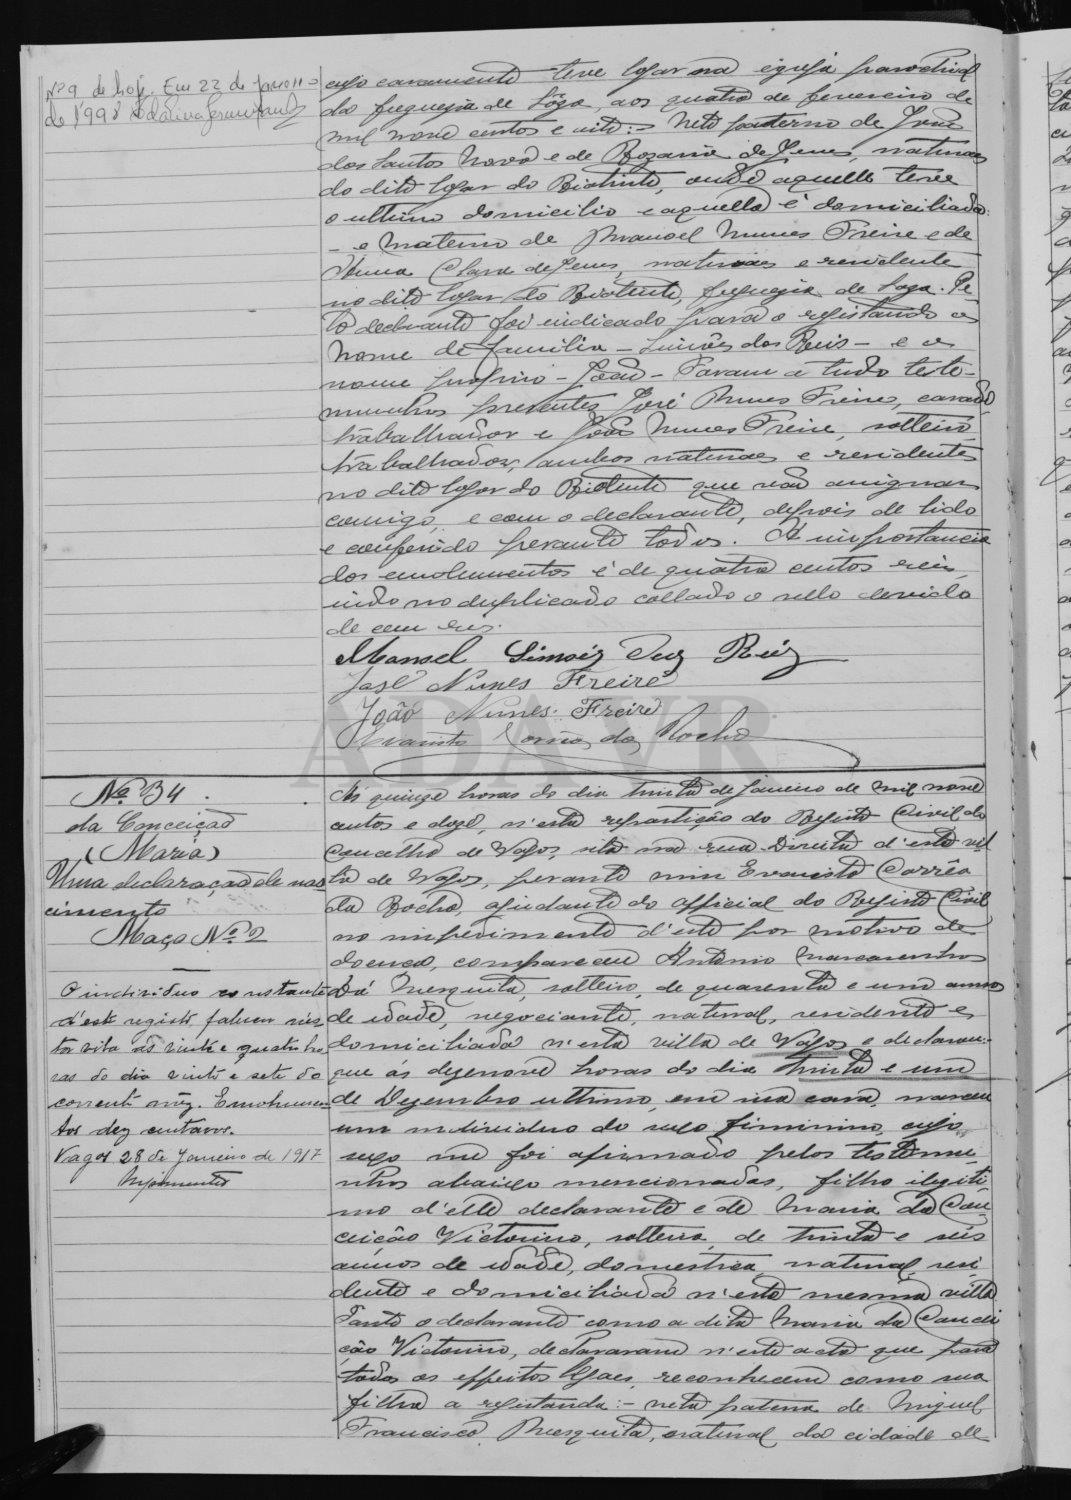 Nº 9 de hoj. Em 22 de
de 1998
cujo casamento teve logar na egreja parochial
da freguezia de Sôza, aos quatro de fevereiro de
mil nove centos e oito:- Neto paterno de José
dos Santos Novo e de Rozaria de Jesus, naturaes
do dito logar do Boialvo, onde aquelle teve
o ultimo domicilio e aquella é domiciliada:
- e materno de Manoel Nunes Freire e de
Anna Clara de Jesus, naturaes e residentes
no dito logar do freguezia de Soza. Pe-
lo declarante foi indicado para o registando o
nome de familia - Simões dos Reis - e o
nome proprio - João - Foram a tudo teste-
munhas presentes José Nunes Freire, casado,
trabalhador e João Nunes Freire, solteiro,
trabalhador, ambos naturaes e residentes
no dito logar do que vão assignar
comigo, e com o declarante, depois de lido
e conferido perante todos. A importancia
dos emolumentos é de quatro centos reis,
indo no duplicado collado o sello devido
de cem reis.
Manoel Simois dus Reis
José Nunes Freire
João Nunes Freire
Evaristo Corrêa da Rocha
ADAVR
Nº 34
da Conceição
(Maria)
Uma declaração de nas
cimento
Maço Nº 2
O individuo constante
d'este registo, faleceu nes-
ta vila ás vinte e quatro ho-
ras do dia vinte e sete do
corrente mez. Emolumen-
tos dez centavos.
Vagos 28 de Janeiro de 1917
Ás quinze horas do dia trinta de Janeiro de mil nove
centos e doze, n'esta repartição do Registo Civil do
Concelho de Vagos, sita na rua Direita d'esta vil-
la de Vagos, perante mim Evaristo Corrêa
da Rocha, ajudante do official do Registo Civil,
no impedimento d'este por motivo de
doença, compareceu Antonio Nascimento
Da Mesquita, solteiro, de quarenta e um annos
de idade, negociante, natural, residente e
domiciliado n'esta villa de Vagos e declarou:-
que ás dezenove horas do dia trinta e um
de Dezembro ultimo, em sua casa, nasceu
um individuo do sexo feminino, cujo
sexo me foi afirmado pelas testemu-
nhas abaixo mencionadas, filho ilegiti-
mo d'elle declarante e de Maria da Con-
ceição Victorino, solteira, de trinta e seis
annos de idade, domestica, natural, resi-
dente e domiciliada n'esta mesma villa.
Tanto o declarante como a dita Maria da Concei-
ção Victorino, declararam n'este acto que para
todos os effeitos legaes, reconhecem como sua
filha a registanda:- neta paterna de Miguel
Francisco Mesquita, natural da cidade de